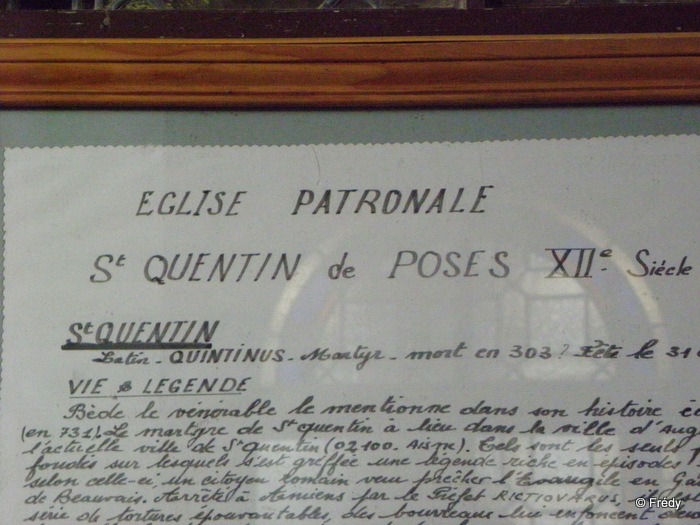 EGLISE PATRONALE
St QUENTIN de POSES XIIe Siécle
St QUENTIN
Latin - QUINTINUS - Martyr - mort en 303? Fête le 31
VIE & LEGENDE
Bède le vénorable le mentionne dans son histoire
(en 731). Le martyre de St quentin a lieu dans la ville d'Aug
l'actuelle ville de St Quentin (02100. Aisne). Tels sont les seuls
fondés sur lesquels s'est greffée une légende riche en épisodes
selon celle-ci, un citoyen romain venu prêcher l'Evangile en
de Beauvais. Arrêté à Amiens par le Préfet RICTIOVARUS,
série de tortures épouvantables, des bourreaux lui enfoncent
© Fredy